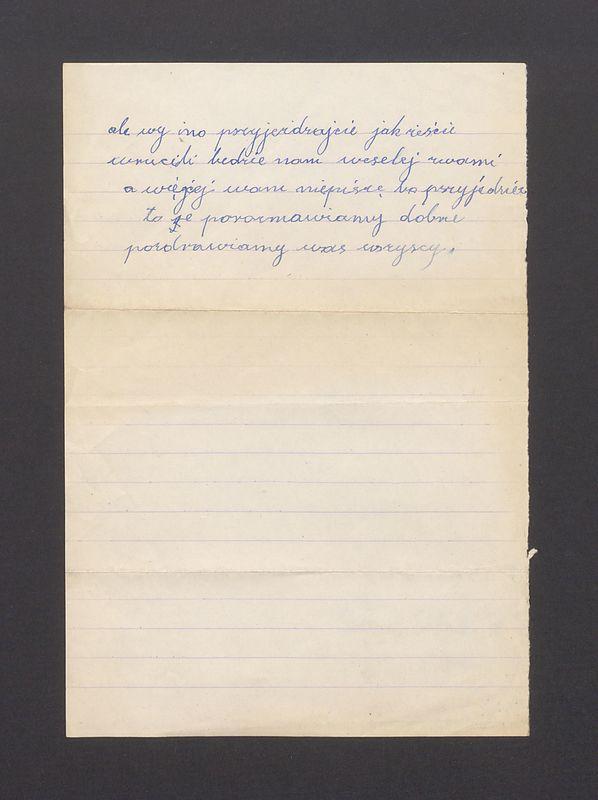 ale wy ino przyjeżdzajcie jak ieście
wrucili bedzie nam weselej zwami
a więcej wam niepiszę bo przyjedzieć
to se porozmawiamy dobrze
pozdrawiamy was wszyscy.